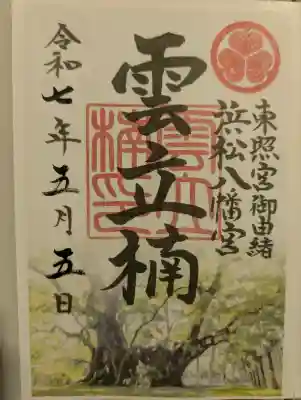 東照宮御由緒
浜松八幡宮
雲立楠
雲立楠印
令和七年五月五日